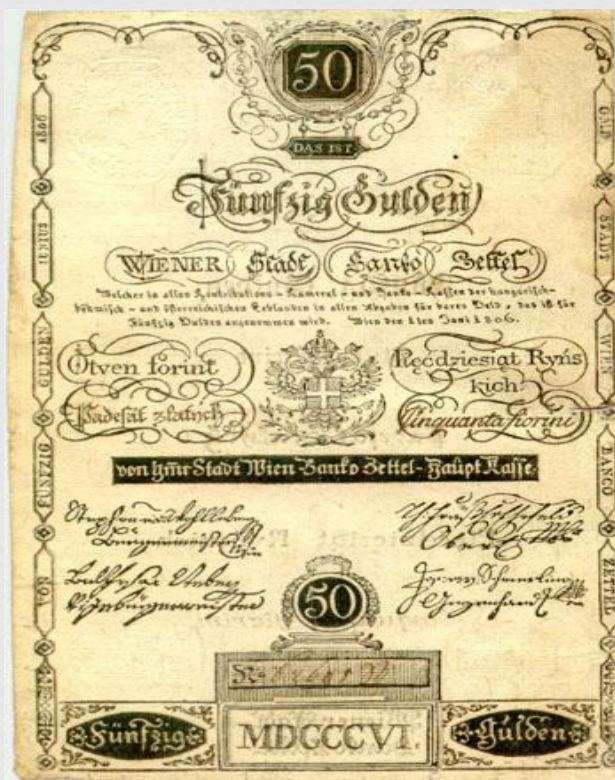 50
DAS IST
Fünfzig Gulden
WIENER Stadt Banko Zettel
Welcher in allen Kontributions-Kameral- und Banko-Kassen der hungarisch-
böhmisch- und österreichischen Erblanden in allen Abgaben für bares Geld, das ist für
Fünfzig Gulden angenommen wird. Wien den 1ten Juni 1806.
Ötven forint
Pięcdziesiat Ryńs
kich
Padesát zlatých
Cinquanta fiorini
von Stadt Wien Banko Zettel-Haupt Kasse
50
No
Fünfzig
MDCCCVI
Gulden
VON FÜNFZIG GULDEN IUNIUS 1806
STADT WIEN BANCO ZETTEL